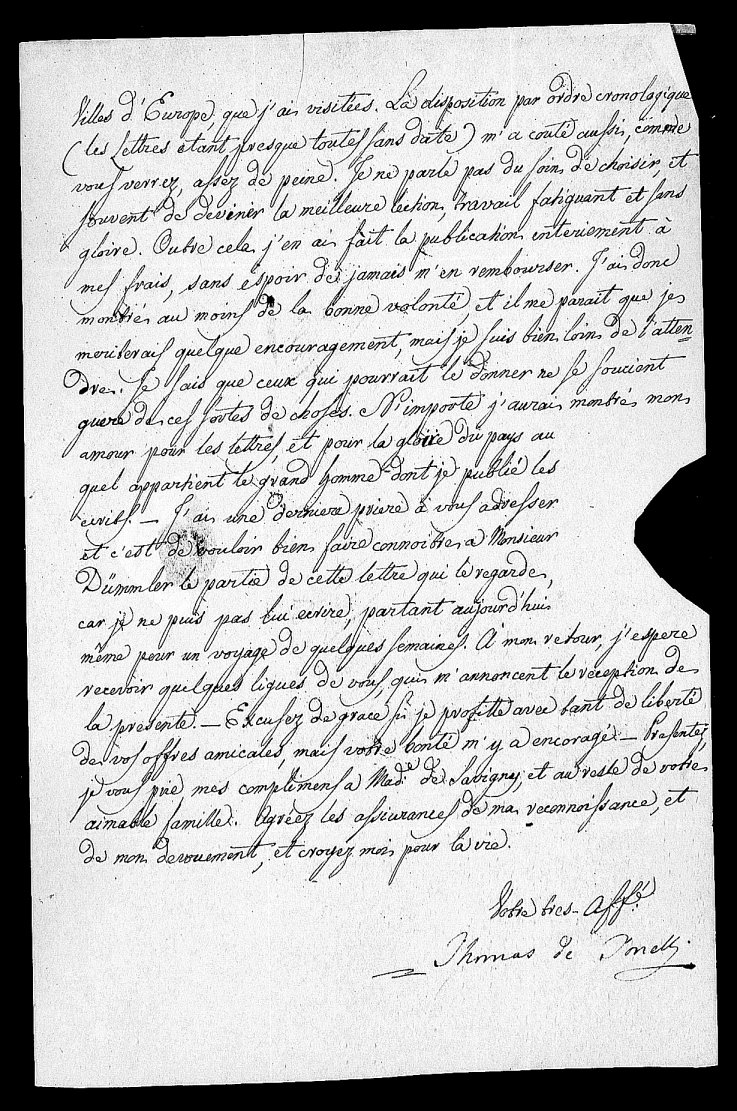 Villes d'Europe que j'ai visitées. La disposition par ordre cronologique
(les Lettres etant presque toutes sans date) m'a couté aussi, comme
vous verrez, assez de peine. Je ne parle pas du soin de choisir, et
souvent de deviner la meilleure lection, travail fatiguant et sans
gloire. Outre cela, j'en ai fait la publication entierement à
mes frais, sans espoir de jamais m'en rembourser. J'ai donc
montré au moins de la bonne volonté, et il me parait que je
meriterais quelque encouragement, mais je suis bien loin de l'atten-
dre. Je sais que ceux qui pourrait le donner ne se soucient
guere de ces sortes de choses. N'importe j'aurai montré mon
amour pour les lettres, et pour la gloire du pays au
quel appartient le grand homme dont je publié les
ecrits. — J'ai une derniere priere à vous adresser
et c'est de vouloir bien faire connoitre a Monsieur
Dümmler le partie de cette lettre qui le regarde,
car je ne puis pas lui ecrire, partant aujourd'hui
même pour un voyage de quelques semaines. A mon retour, j'espere
recevoir quelques lignes de vous, qui m'annoncent le reception de
la presente. — Excusez de grace si je profitte avec tant de liberté
de vos offres amicales, mais votre bonté m'y a encoragé — Presentez,
je vous prie mes complimens a Mad.e de Savigny, et au reste de votre
aimable famille. Agréez les assiurances de ma reconnoissance, et
de mon devouement, et croyez moi pour la vie.
Votre tres-Aff.é
Thomas de Tonelli